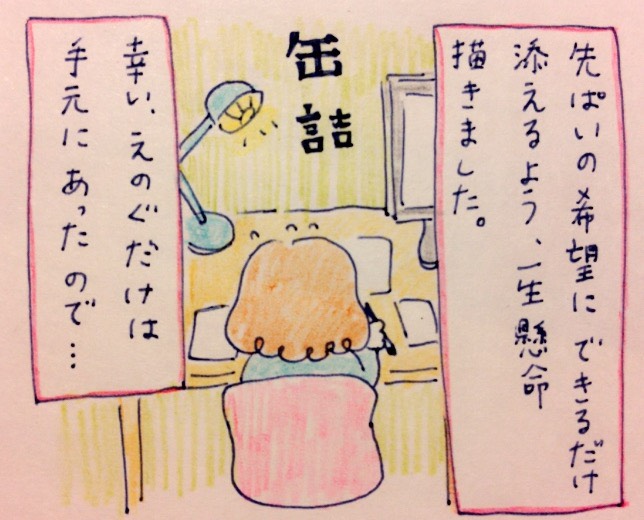 先ぱいの希望にできるだけ
添えるよう、一生懸命
描きました。
缶詰
幸い、えのぐだけは
手元にあったので…